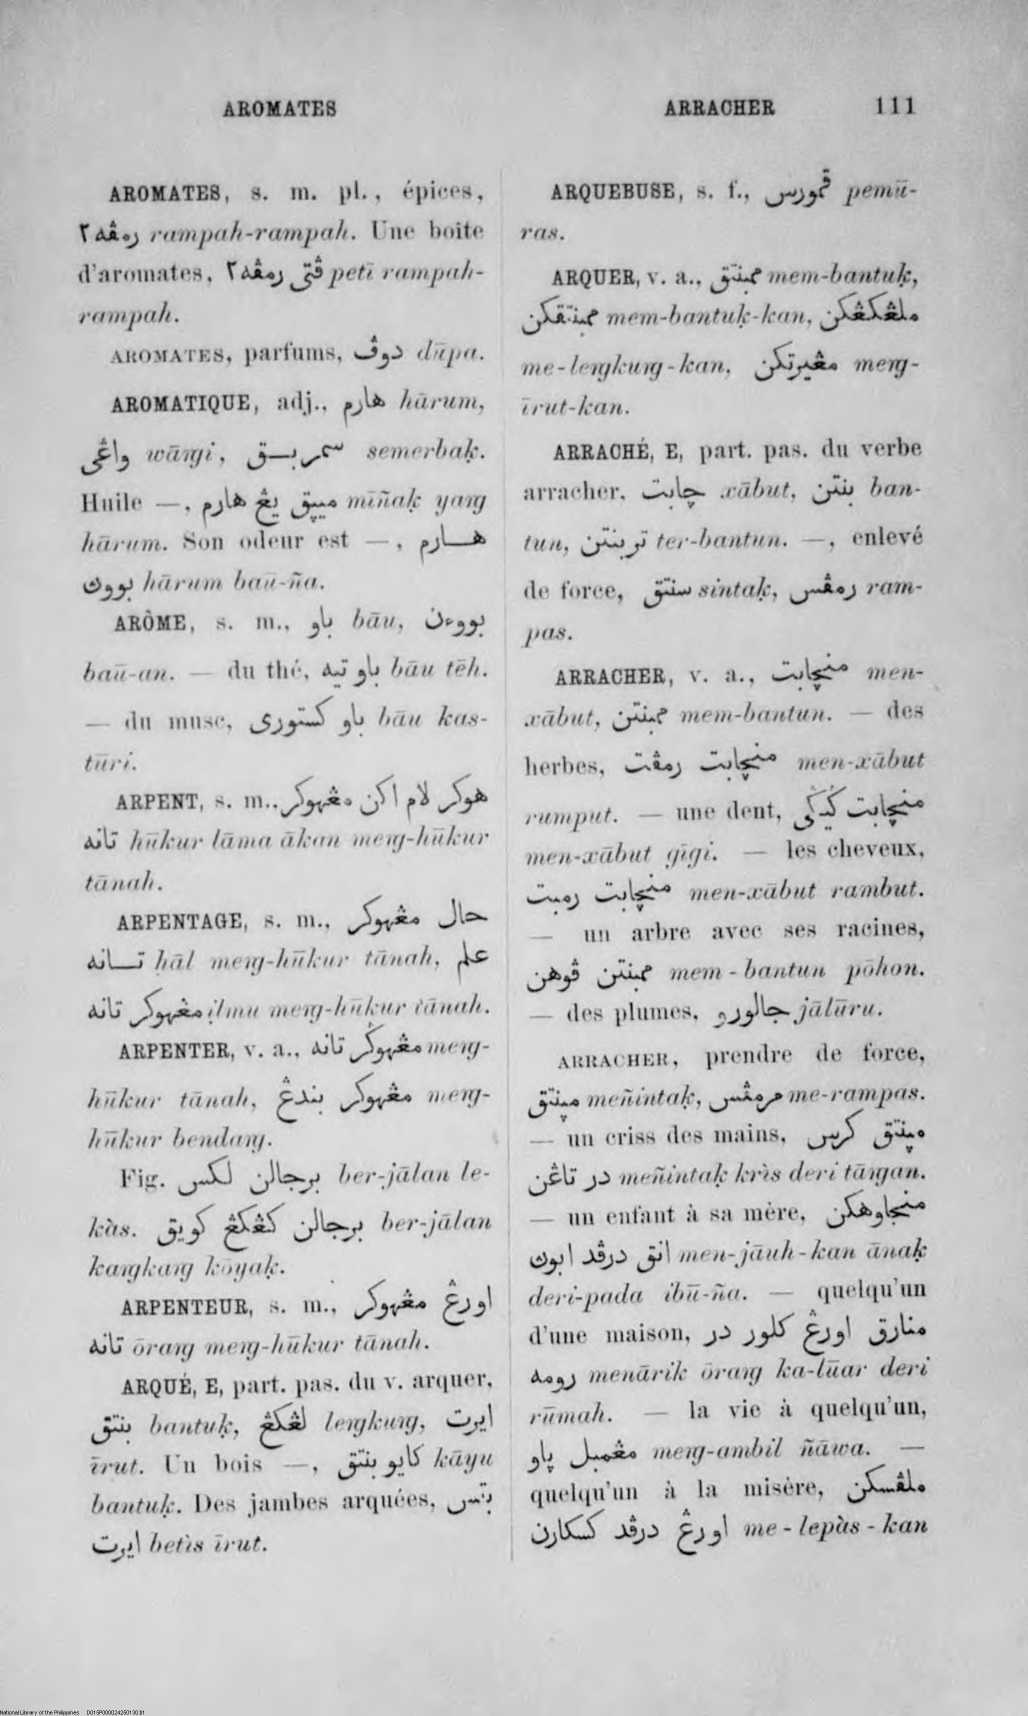 AROMATES
ARRACHER 111
AROMATES, s. m. pl., épices,
رمڤه٢ rampah-rampah. Une boîte
d'aromates, ڤتي رمڤه٢ petī rampah-
rampah.
AROMATES, parfums, دوڤ dūpa.
AROMATIQUE, adj., هارم hārum,
واڠي wāṛgi, سمربـق semerbaḳ.
Huile —, ميڽق يڠ هارم mīñaḳ yaṛg
hārum. Son odeur est —, هـارم
بووڽ hārum baū-ña.
ARÔME, s. m., باو bāu, بووءن
baū-an. — du thé, باو تيه bāu tēh.
— du musc, باو كستوري bāu kas-
tūri.
ARPENT, s. m., هوكر لام اكن مڠهوكر
تانه hūkur lāma ākan meṛg-hūkur
tānah.
ARPENTAGE, s. m., حال مڠهوكر
تـانه ḥāl meṛg-hūkur tānah, علم
مڠهوكر تانه i̤lmu meṛg-hūkur tānah.
ARPENTER, v. a., مڠهوكر تانه meṛg-
hūkur tānah, مڠهوكر بندڠ meṛg-
hūkur bendaṛg.
Fig. برجالن لكس ber-jālan le-
kàs. برجالن كڠكڠ كويق ber-jālan
kaṛgkaṛg kōyaḳ.
ARPENTEUR, s. m., اورڠ مڠهوكر
تانه ōraṛg meṛg-hūkur tānah.
ARQUÉ, E, part. pas. du v. arquer,
بنتق bantuḳ, لڠكڠ leṛgkuṛg, ايرت
īrut. Un bois —, كايو بنتق kāyu
bantuḳ. Des jambes arquées, بتس
ايرت betìs īrut.
ARQUEBUSE, s. f., ڤمورس pemū-
ras.
ARQUER, v. a., ممبنتق mem-bantuḳ,
ممبنتقكن mem-bantuḳ-kan, ملڠكڠكن
me-leṛgkuṛg-kan, مڠيرتكن meṛg-
īrut-kan.
ARRACHÉ, E, part. pas. du verbe
arracher, چابت xābut, بنتن ban-
tun, تربنتن ter-bantun. —, enlevé
de force, سنتق sintaḳ, رمڤس ram-
pas.
ARRACHER, v. a., منچابت men-
xābut, ممبنتن mem-bantun. — des
herbes, منچابت رمڤت men-xābut
rumput. — une dent, منچابت ݢيݢي
men-xābut gīgi. — les cheveux,
منچابت رمبت men-xābut rambut.
— un arbre avec ses racines,
ممبنتن ڤوهن mem-bantun pōhon.
— des plumes, جالورو jālūru.
ARRACHER, prendre de force,
مڽنتق meñintaḳ, مرمڤس me-rampas.
— un criss des mains, مڽنتق كرس
در تاڠن meñintaḳ krìs deri tāṛgan.
— un enfant à sa mère, منجاوهكن
انق درڤد ابوڽ men-jāuh-kan ānaḳ
deri-pada ibū-ña. — quelqu'un
d'une maison, منارق اورڠ كلور در
رومه menārik ōraṛg ka-lūar deri
rūmah. — la vie à quelqu'un,
مڠمبل ڽاو meṛg-ambil ñāwa. —
quelqu'un à la misère, ملڤسكن
اورڠ درڤد كسكارن me-lepàs-kan